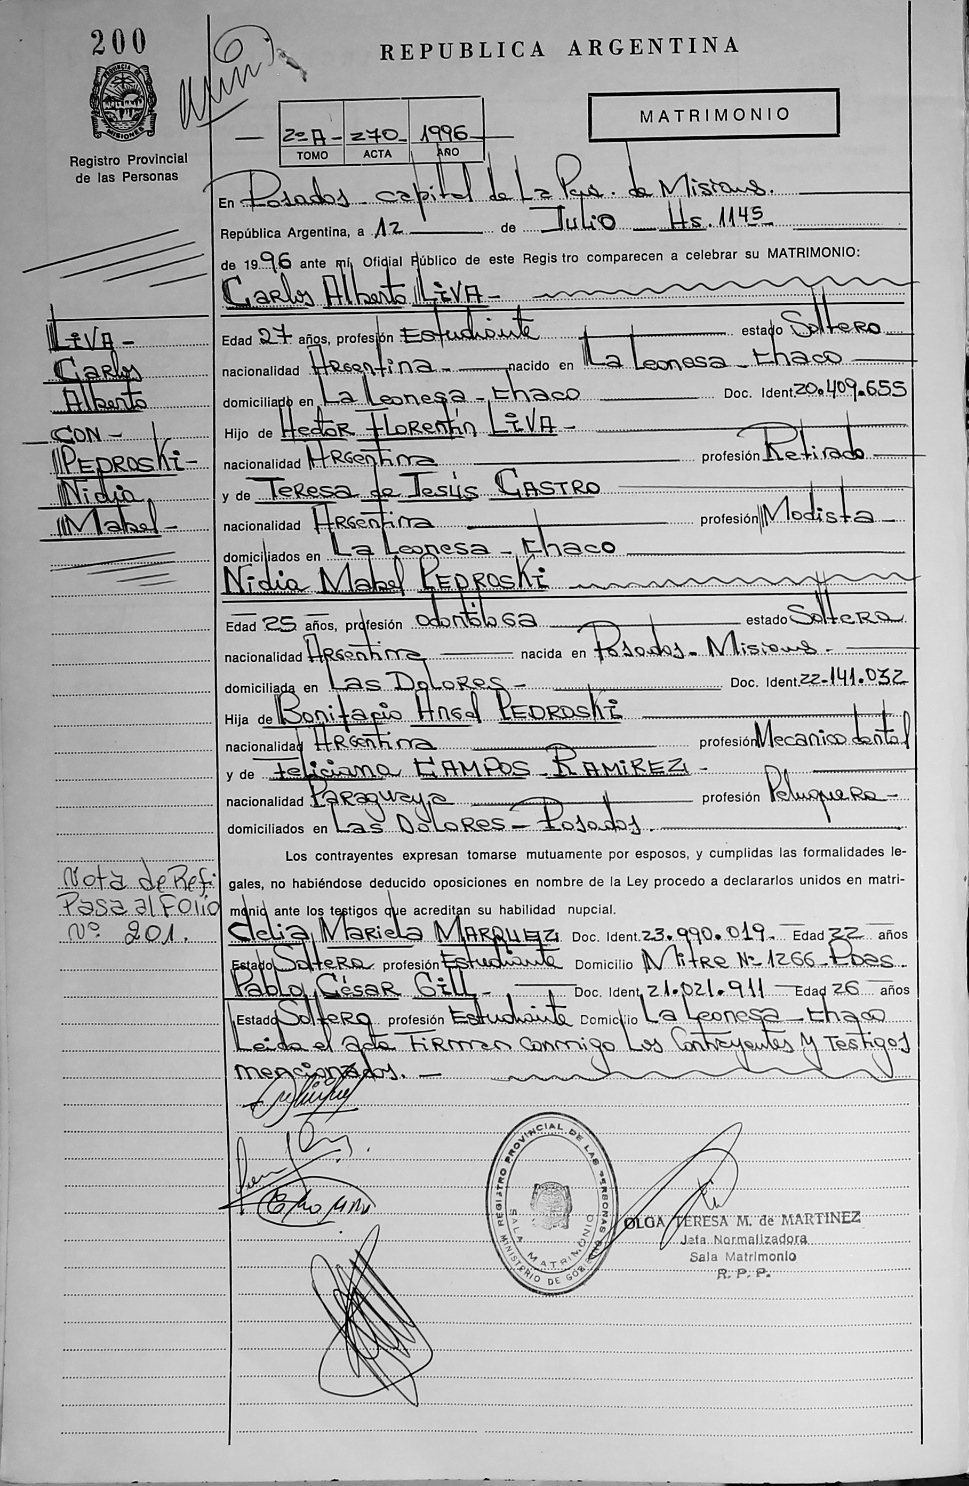 200
REPUBLICA ARGENTINA
PROVINCIA DE MISIONES
MATRIMONIO
2º A - 270 1996
TOMO ACTA AÑO
Registro Provincial
de las Personas
En Posadas capital de La Pcia. de Misiones.
República Argentina, a 12 de Julio Hs. 1145
de 1996 ante mí, Oficial Público de este Registro comparecen a celebrar su MATRIMONIO:
Carlos Alberto LIVA -
LIVA -
Carlos
Alberto
CON -
PEDROSKI -
Nidia
Mabel -
Edad 27 años, profesión Estudiante estado Soltero
nacionalidad Argentina - nacido en La Leonesa - Chaco
domiciliado en La Leonesa - Chaco Doc. Ident. 20.409.655
Hijo de Hector Florentín LIVA -
nacionalidad Argentina profesión Retirado
y de Teresa de Jesús CASTRO
nacionalidad Argentina profesión Modista
domiciliados en La Leonesa - Chaco
Nidia Mabel PEDROSKI
Edad 25 años, profesión odontóloga estado Soltera
nacionalidad Argentina nacida en Posadas - Misiones -
domiciliada en Las Dolores - Doc. Ident. 22.141.032
Hija de Bonifacio Angel PEDROSKI
nacionalidad Argentina profesión Mecanico dental
y de Feliciana CAMPOS RAMIREZ -
nacionalidad Paraguaya profesión Peluquera -
domiciliados en Las Dolores - Posadas.
Los contrayentes expresan tomarse mutuamente por esposos, y cumplidas las formalidades le-
gales, no habiéndose deducido oposiciones en nombre de la Ley procedo a declararlos unidos en matri-
monio ante los testigos que acreditan su habilidad nupcial.
Nota de Ref.
Pasa al Folio
Nº 201.
Clelia Mariela MARQUEZ Doc. Ident. 23.990.019 Edad 22 años
Estado Soltera profesión Estudiante Domicilio Mitre Nº 1266 Pdas.
Pablo César Gill - Doc. Ident. 21.021.911 Edad 26 años
Estado Soltero profesión Estudiante Domicilio La Leonesa - Chaco
Leida el acta Firman conmigo los Contrayentes y Testigos
mencionados. -
REGISTRO PROVINCIAL DE LAS PERSONAS
SALA MATRIMONIO
MINISTERIO DE GOBIERNO
OLGA TERESA M. de MARTINEZ
Jefa Normalizadora
Sala Matrimonio
R. P. P.